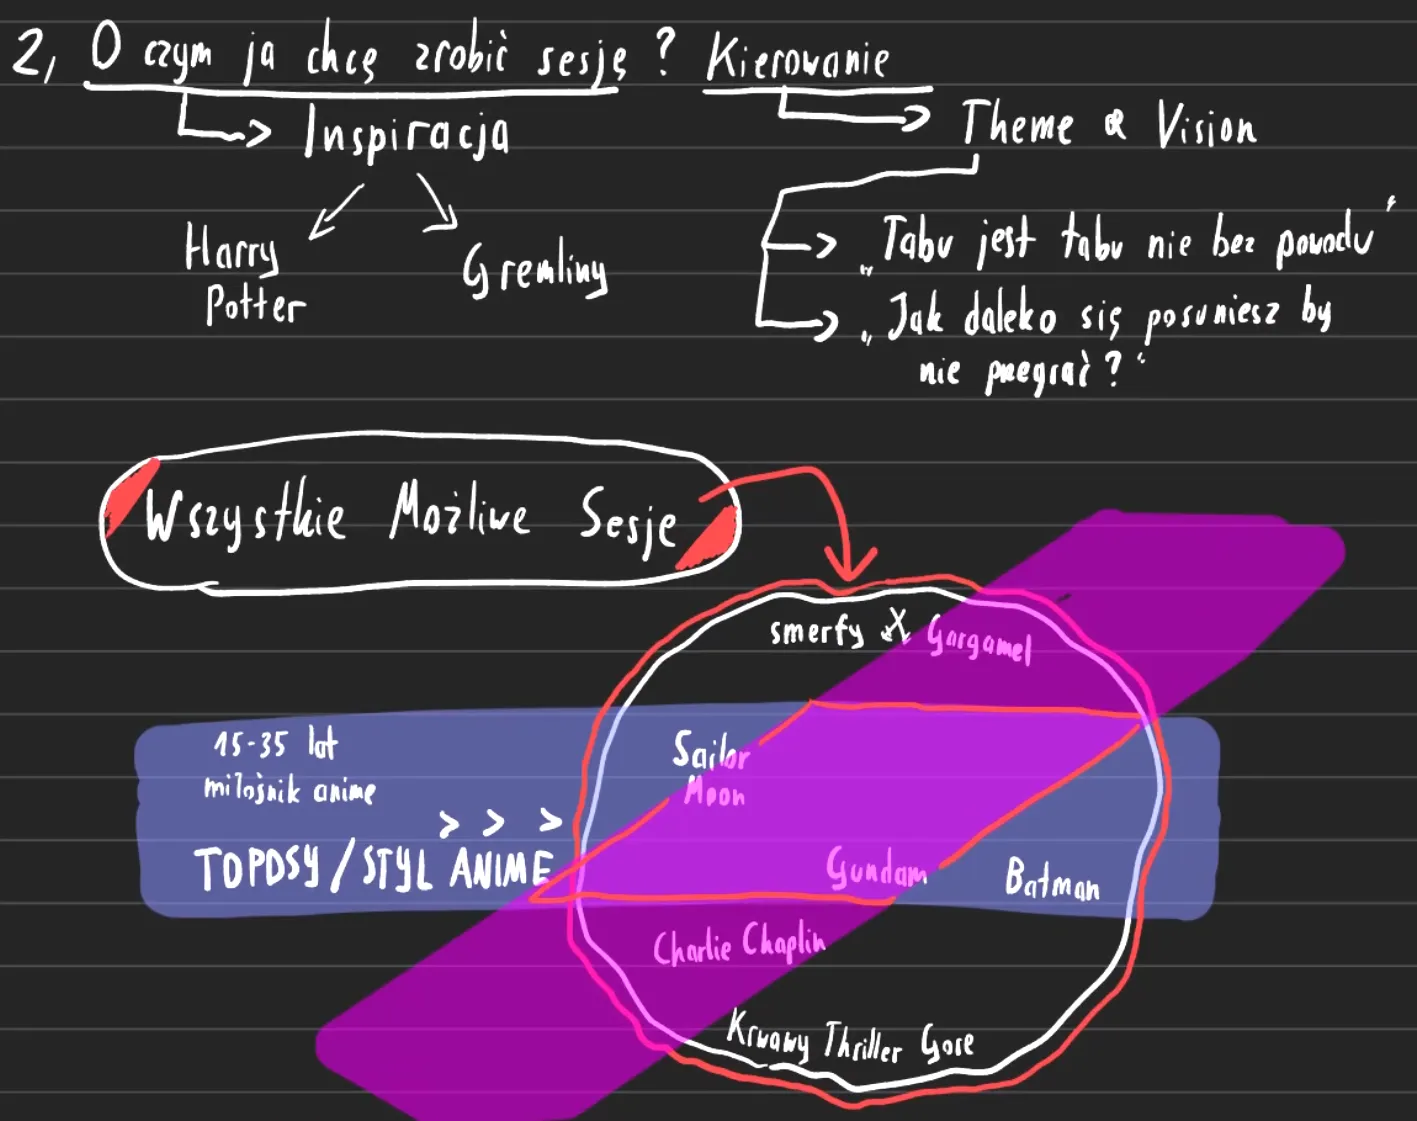 2, O czym ja chcę zrobić sesję? Kierowanie
Inspiracja
Theme & Vision
Harry
Potter
Gremliny
„Tabu jest tabu nie bez powodu"
„Jak daleko się posuniesz by
nie przegrać?"
Wszystkie Możliwe Sesje
smerfy X Gargamel
15-35 lat
miłośnik anime
> > >
TOPOSY/STYL ANIME
Sailor
Moon
Gundam
Batman
Charlie Chaplin
Krwawy Thriller Gore